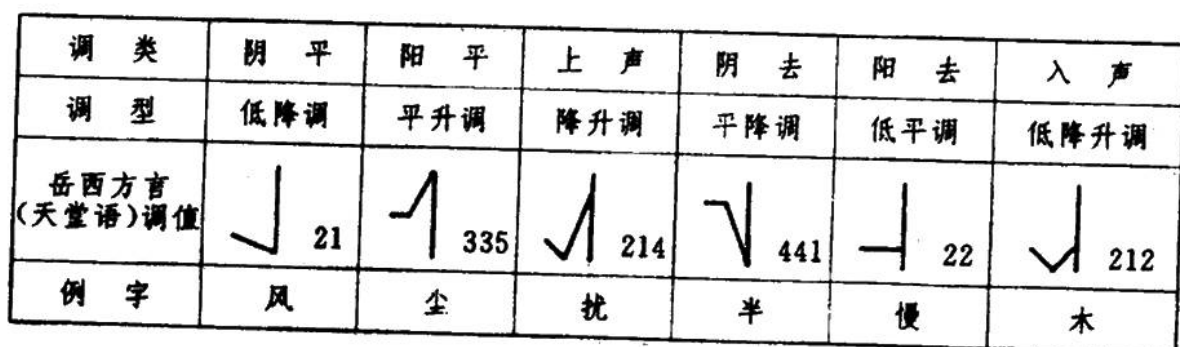 调 类 阴 平 阳 平 上 声 阴 去 阳 去 入 声
调 型 低降调 平升调 降升调 平降调 低平调 低降升调
岳西方言
(天堂语)调值 21 335 214 441 22 212
例 字 风 尘 扰 半 慢 木